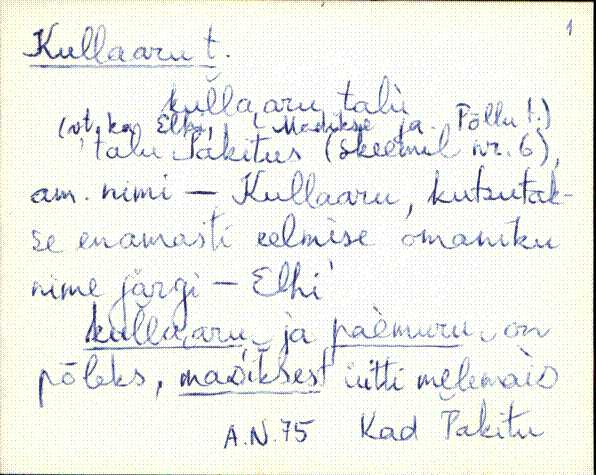 1
Kullaaru t.
kullaaru talu
(vt. ka Elhi, Madikse ja Põllu t.)
talu Pakitus (skeemil nr. 6),
am. nimi – Kullaaru, kutsutak-
se enamasti eelmise omaniku
nime järgi – Elhi
kullaaru ja paèmuru on
põleks, masiksest ütti mèlemàis
A.N. 75 Kad Pakitu